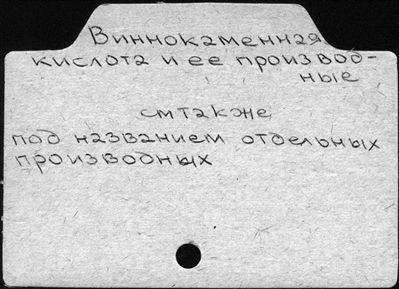 Виннокаменная
кислота и ее производ-
ные
см также
под названием отдельных
производных